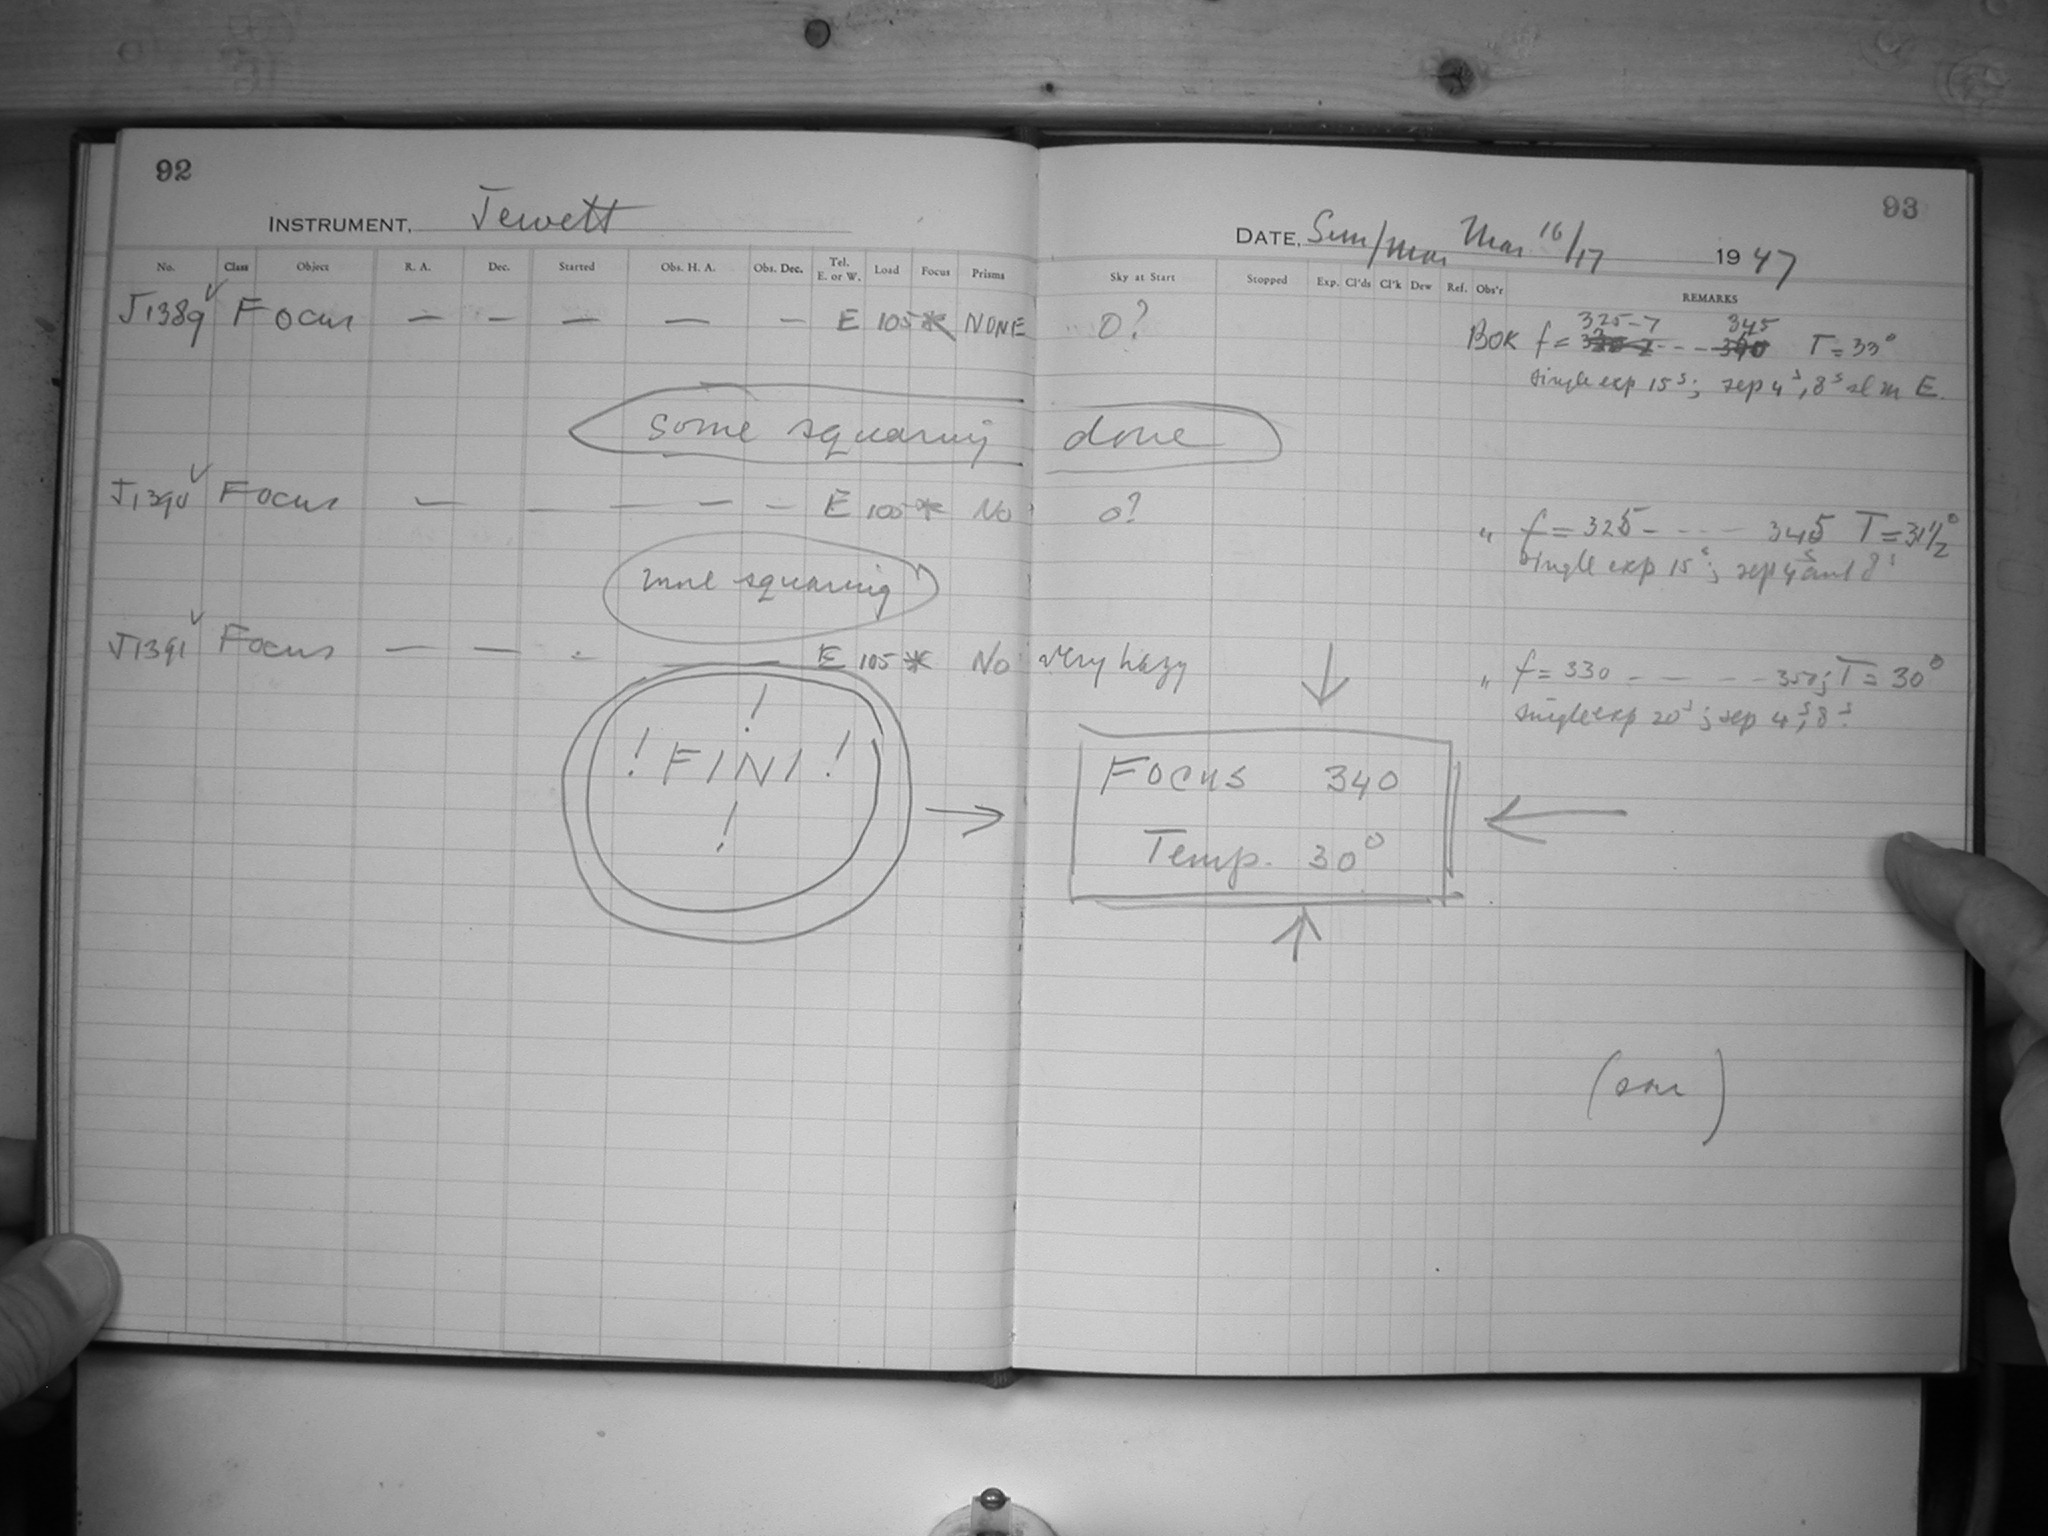 92
INSTRUMENT, Jewett
No. Class Object R. A. Dec. Started Obs. H. A. Obs. Dec. Tel. E. or W. Load Focus Prisms
J1389 ✓ Focus — — — — — E 105 * NONE
some squaring
J1390 ✓ Focus — — — — — E 105 * No
more squaring
J1391 ✓ Focus — — - — — E 105 * No
!
! FINI !
!
→
93
DATE, Sun/Mon Mar 16/17 1947
Sky at Start Stopped Exp. Cl'ds Cl'k Dew Ref. Obs'r REMARKS
325-7 345
0? BOK f = --- T = 33°
single exp 15s; sep 4s, 8s E.
done
0? " f = 325 - --- 345 T = 31½°
single exp 15s; sep 4s and 8s
very hazy " f = 330 - — - - 350; T = 30°
single exp 20s; sep 4s, 8s
↓
Focus 340
Temp. 30°
←
↑